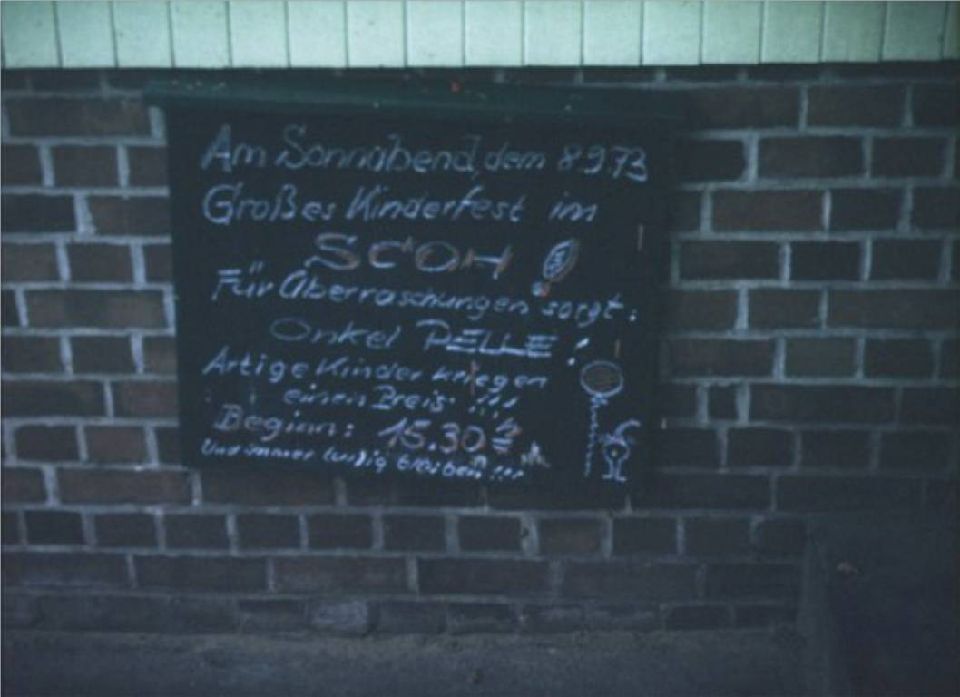 Am Sonnabend, dem 8.9.73
Großes Kinderfest im
SCOH
Für Überraschungen sorgt:
Onkel PELLE!
Artige Kinder kriegen
einen Preis !!!
Beginn: 15.30 h
Und immer lustig bleiben !!!